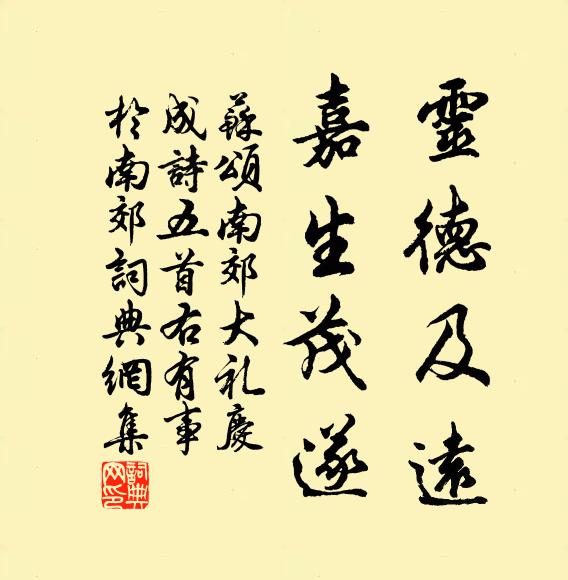 靈德及遠
嘉生茂遂
蘇頌南郊大礼慶
成詩五首右有事
於南郊詞典網集
詞典网印